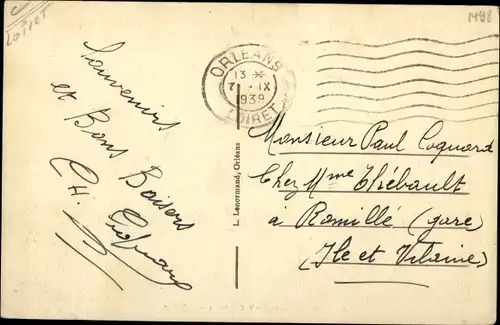 C
Loiret
1498
Souvenirs
et Bons Baisers
CH. Coquard
ORLEANS
13 *
7 - IX
1939
LOIRET
L. Lenormand, Orléans
Monsieur Paul Coquard
Chez Mme Thébault
à Romillé (gare)
(Ile et Vilaine)